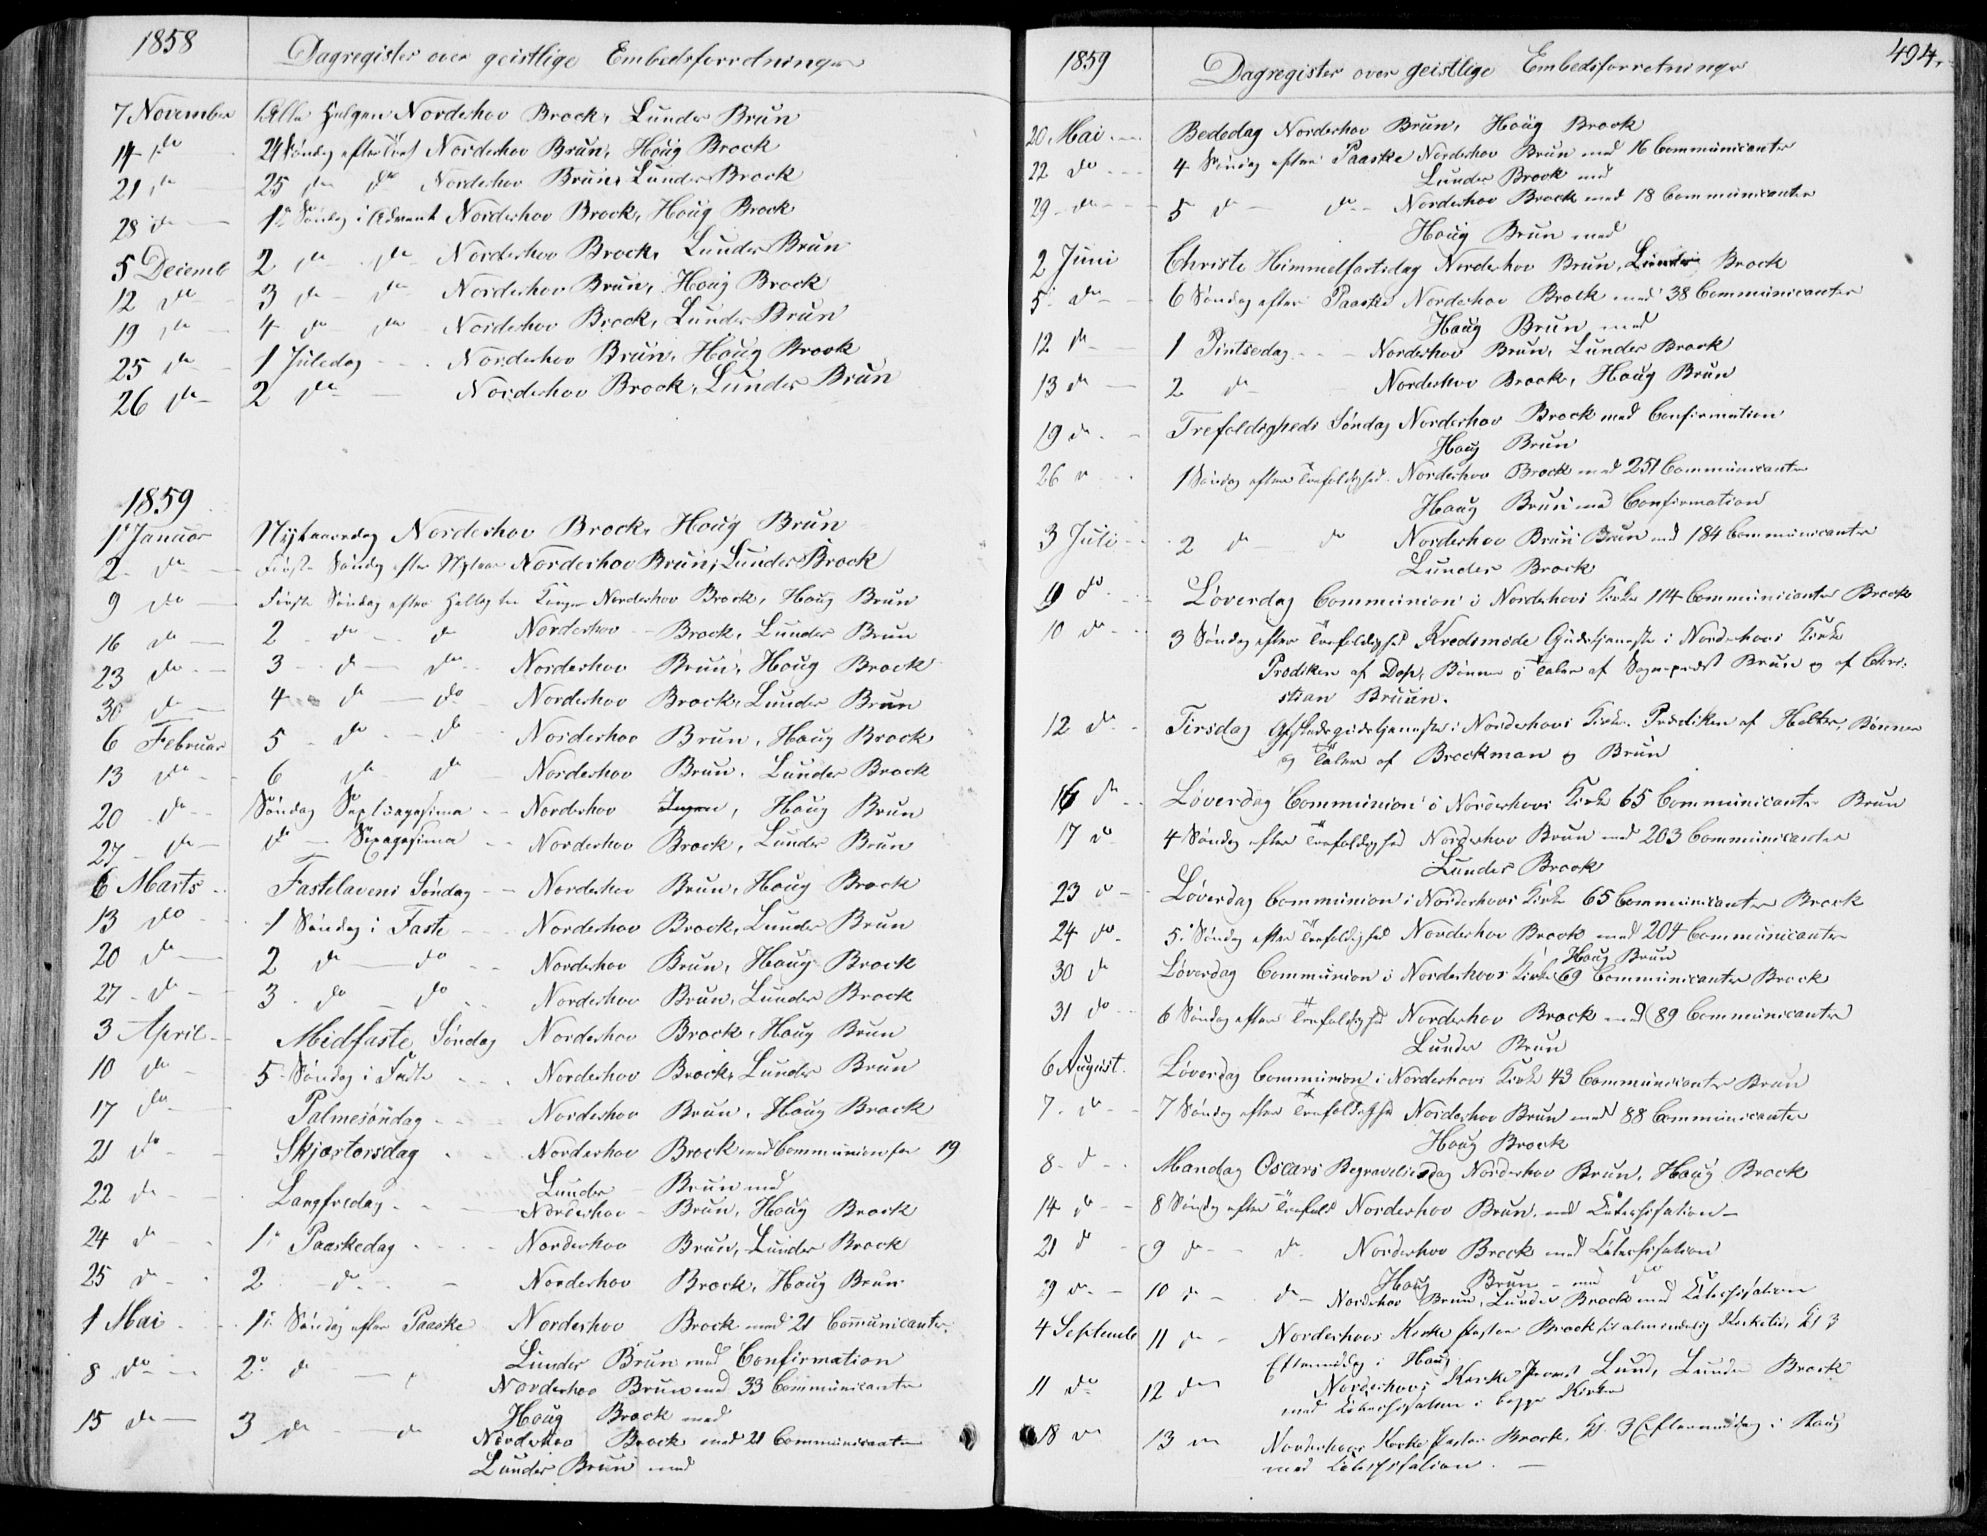 1858
Dagregister over geistlige Embedsforretninger
7 November Alle Helgen Nordeshov Brock, Lunder Brun
14 do 24 Søndag efter Tref Nordeshov Brun, Houg Brock
21 do 25 do do Nordeshov Brun, Lunder Brock
28 do 1e Søndag i Advent Nordeshov Brock, Houg Brock
5 Decemb 2 do do Nordeshov Brock, Lunder Brun
12 do 3 do do Nordeshov Brun, Houg Brock
19 do 4 do do Nordeshov Brock, Lunder Brun
25 do 1 Juledag Nordeshov Brun, Houg Brock
26 do 2 do Nordeshov Brock, Lunder Brun
1859
1 Januar Nytaarsdag Nordeshov Brock, Houg Brun
2 do Første Søndag efter Nytaar Nordeshov Brun, Lunder Brock
9 do Første Søndag efter Hellig tre Konger Nordeshov Brock, Houg Brun
16 do 2 do do Nordeshov Brock, Lunder Brun
23 do 3 do do Nordeshov Brun, Houg Brock
30 do 4 do do Nordeshov Brock, Lunder Brun
6 Februar 5 do do Nordeshov Brun, Houg Brock
13 do 6 do do Nordeshov Brun, Lunder Brock
20 do Søndag Septuagesima Nordeshov Ingen, Houg Brun
27 do do Sexagesima Nordeshov Brock, Lunder Brun
6 Marts Fastelavens Søndag Nordeshov Brun, Houg Brock
13 do 1 Søndag i Faste Nordeshov Brock, Lunder Brun
20 do 2 do do Nordeshov Brun, Houg Brock
27 do 3 do do Nordeshov Brun, Lunder Brock
3 April Midfaste Søndag Nordeshov Brock, Houg Brun
10 do 5 Søndag i Faste Nordeshov Brock, Lunder Brun
17 do Palmesøndag Nordeshov Brun, Houg Brock
21 do Skjærtorsdag Nordeshov Brock med Communion for 19
Lunder Brun med
22 do Langfredag Nordeshov Brun, Houg Brock
24 do 1 Paaskedag Nordeshov Brun, Lunder Brock
25 do 2 do Nordeshov Brock, Houg Brun
1 Mai 1 Søndag efter Paaske Nordeshov Brock med 21 Communicanter
Lunder Brun med Confirmation
8 do 2 do Nordeshov Brun med 33 Communicanter
Houg Brock med
15 do 3 do do Nordeshov Brock med 21 Communicanter
Lunder Brun med
1859
Dagregister over geistlige Embedsforretninger
494.
20 Mai Bededag Nordeshov Brun, Houg Brock
22 do 4 Søndag efter Paaske Nordeshov Brun med 16 Communicanter
Lunder Brock med
29 do 5 do do Nordeshov Brock med 18 Communicanter
Houg Brun med
2 Juni Christi Himmelfartsdag Nordeshov Brun, Lunder Brock
5 do 6 Søndag efter Paaske Nordeshov Brock med 38 Communicanter
Houg Brun med
12 do 1 Pintsedag Nordeshov Brun, Lunder Brock
13 do 2 do Nordeshov Brock, Houg Brun
19 do Trefoldigheds Søndag Nordeshov Brock med Confirmation
Houg Brun
26 do 1 Søndag efter Trefoldighed Nordeshov Brock med 251 Communicanter
Houg Brun med Confirmation
3 Juli 2 do do Nordeshov Brun Brun med 184 Communicanter
Lunder Brock
9 do Løverdag Communion i Nordeshovs Kirke 114 Communicanter Brock
10 do 3 Søndag efter Trefoldighed Kredsmøde Gudstjeneste i Nordeshovs Kirke
Prædiken af Dop, Bønner og Taler af Sognepræst Brun og af Chri-
stian Bruun.
12 do Tirsdag Afskedsgudstjeneste i Nordeshovs Kirke. Prædiken af Holter, Bønner
og Taler af Brockman og Brun
16 do Løverdag Communion i Nordeshovs Kirke 65 Communicanter Brun
17 do 4 Søndag efter Trefoldighed Nordeshov Brun med 203 Communicanter
Lunder Brock
23 do Løverdag Communion i Nordeshovs Kirke 65 Communicanter Brock
24 do 5 Søndag efter Trefoldighed Nordeshov Brock med 204 Communicanter
Houg Brun
30 do Løverdag Communion i Nordeshovs Kirke 69 Communicanter Brock
31 do 6 Søndag efter Trefoldighed Nordeshov Brock med 89 Communicanter
Lunder Brun
6 August Løverdag Communion i Nordeshovs Kirke 43 Communicanter Brun
7 do 7 Søndag efter Trefoldighed Nordeshov Brun med 88 Communicanter
Houg Brock
8 do Mandag Oscars Begravelsesdag Nordeshov Brun, Houg Brock
14 do 8 Søndag efter Trefold Nordeshov Brun med Catechisation
21 do 9 do do Nordeshov Brock med Catechisation
Houg Brun med do
29 do 10 do do Nordeshov Brun, Lunder Brock med Catechisation
4 Septembr 11 do Nordeshovs Kirke Pastor Brock Kl 3
Eftermiddag i Houg
11 do 12 do Nordeshovs Kirke Provst Lund, Lunder Brock
med Catechisation i begge Kirker
18 do 13 do Nordeshovs Kirke Pastor Brock, Kl. 3 Eftermiddag i Houg
med Catechisation